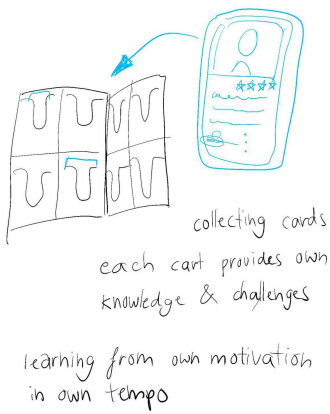 collecting cards
each cart provides own
knowledge & challenges
learning from own motivation
in own tempo